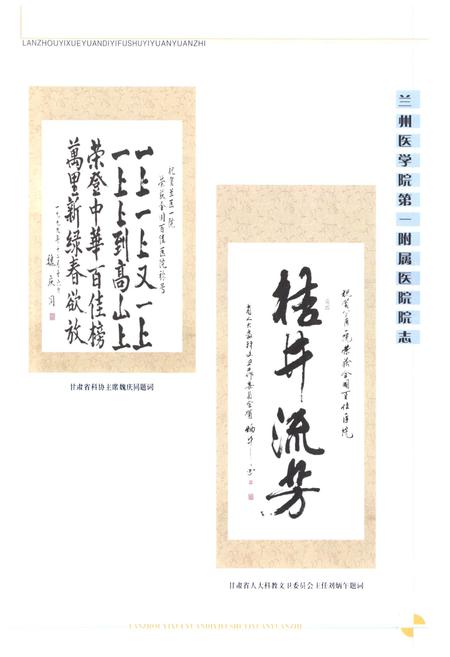 LANZHOUYIXUEYUANDIYIFUSHUYIYUANYUANZHI
兰州医学院第一附属医院院志
祝贺兰医一院
荣获全国百佳医院称号
一上一上又一上
一上上到高山上
荣登中华百佳榜
萬里新绿春欲放
魏庆同
甘肃省科协主席魏庆同题词
荣获全国百佳医院
桔井流芳
甘肃省人大科教文卫委员会主任刘炳午题词
LANZHOUYIXUEYUANDIYIFUSHUYIYUANYUANZHI